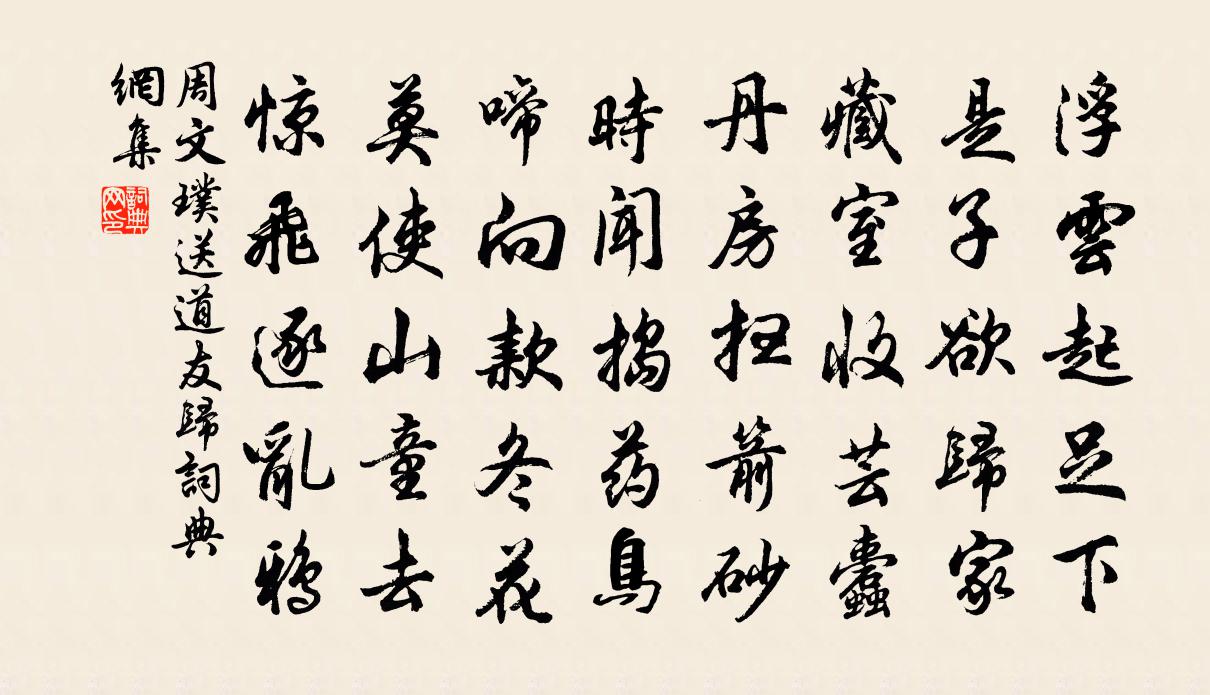 浮雲起足下
是子欲歸家
藏室收芸蠹
丹房扫箭砂
時聞搗药鳥
啼向款冬花
莫使山童去
惊飛逐亂鴉
周文璞送道友歸詞典
網集
詞典
网印